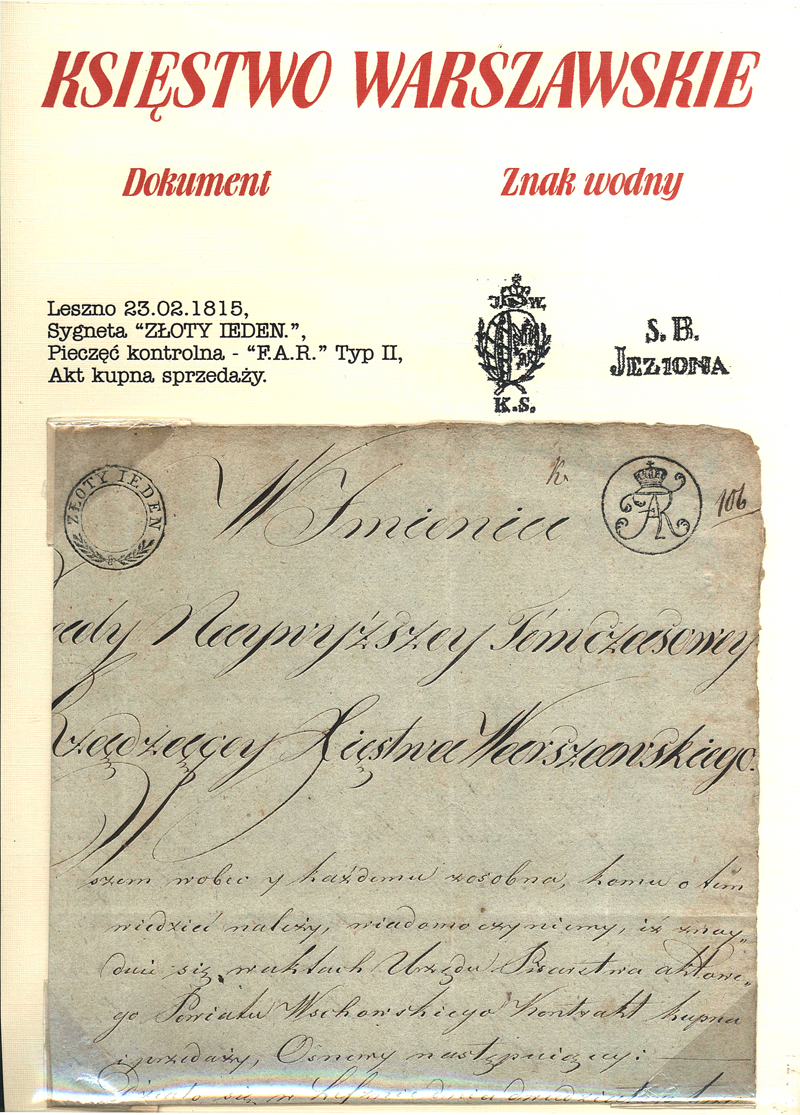 KSIĘSTWO WARSZAWSKIE
Dokument
Znak wodny
Leszno 23.02.1815,
Sygneta “ZŁOTY IEDEN.”,
Pieczęć kontrolna - “F.A.R.” Typ II,
Akt kupna sprzedaży.
K.S.
S. B.
JEZIONA
ZŁOTY IEDEN
W Imieniu
106
ady Naywyższey Tómczasowey
ządzącey Xięstwa Warszawskiego.
szem wobec y każdemu zosobna, komu o tém
wiedzieć należy, wiadomo czyniemy, iż znay„
duie się w aktach Urzędu Pisarstwa aktowe„
go Powiatu Wschowskiego Kontrakt kupna
i przedaży, Osnowy następuiącey:
Działo się w